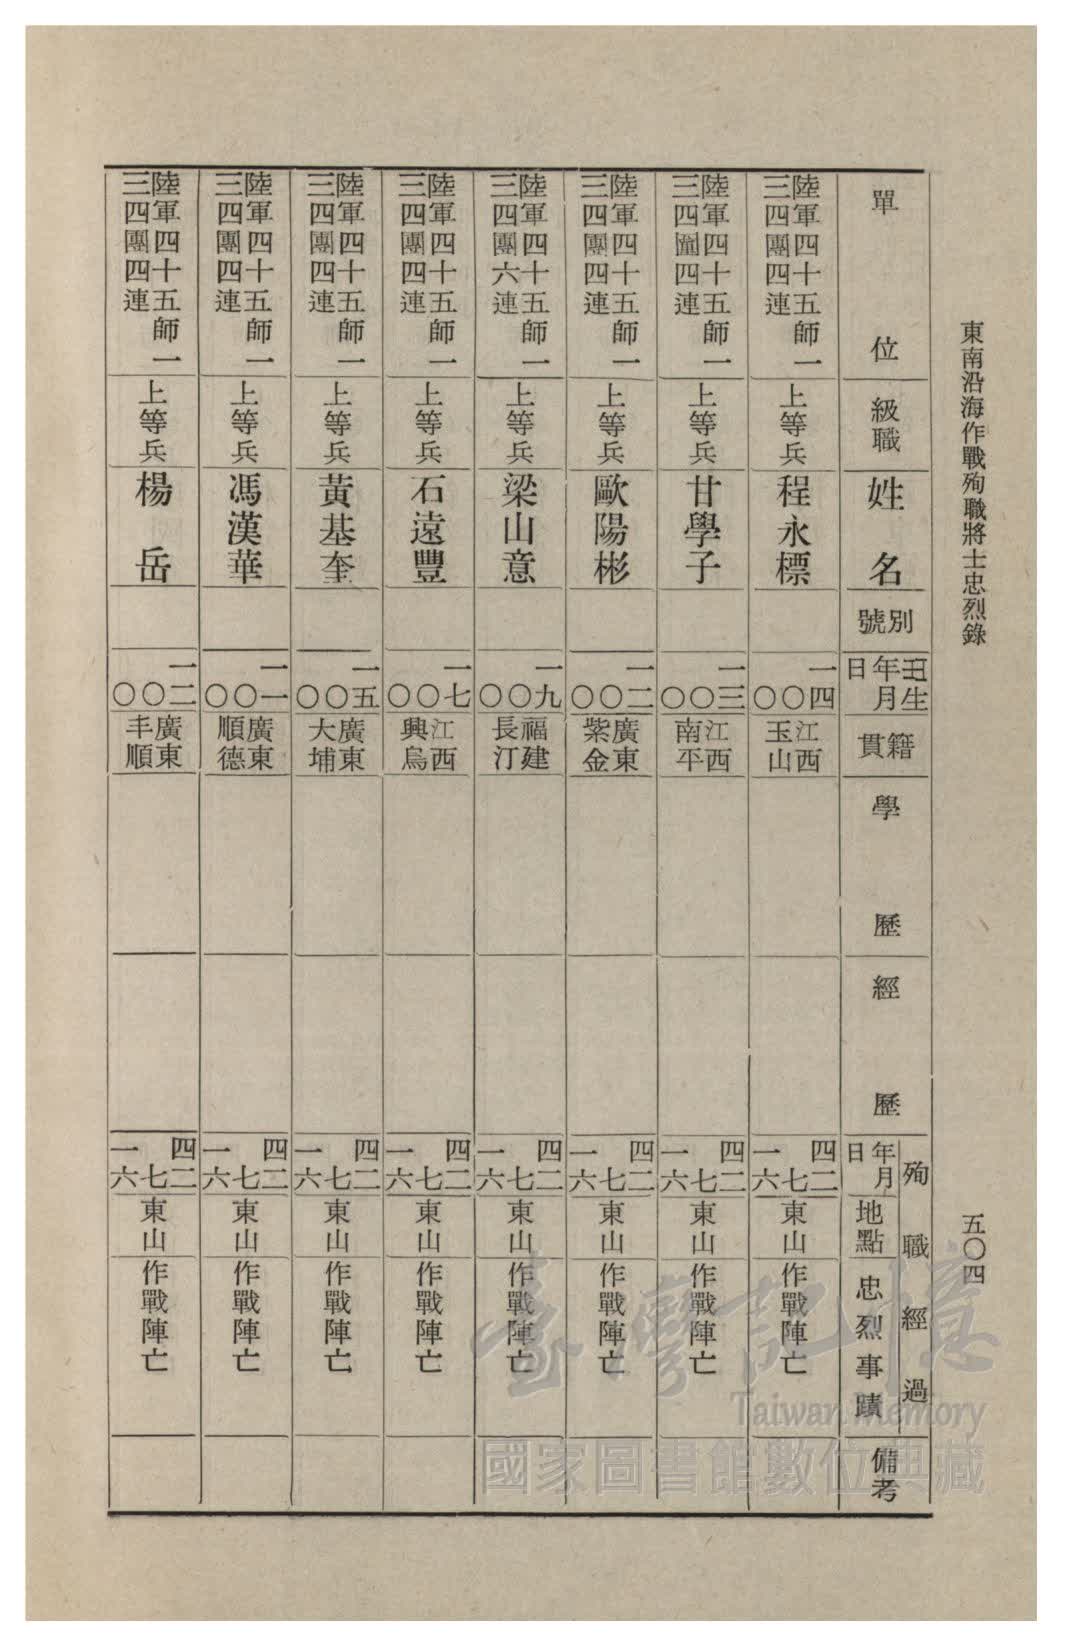 東南沿海作戰殉職將士忠烈錄
五〇四
單位
級職
姓名
別號
出生
年月
日
籍貫
學歷
經歷
殉職經過
年月
日
地點
忠烈事蹟
備考
陸軍四十五師一
三四團四連
上等兵
程永標
一四
〇
〇
江西
玉山
四二
七
一六
東山
作戰陣亡
陸軍四十五師一
三四團四連
上等兵
甘學子
一三
〇
〇
江西
南平
四二
七
一六
東山
作戰陣亡
陸軍四十五師一
三四團四連
上等兵
歐陽彬
一二
〇
〇
廣東
紫金
四二
七
一六
東山
作戰陣亡
陸軍四十五師一
三四團六連
上等兵
梁山意
一九
〇
〇
福建
長汀
四二
七
一六
東山
作戰陣亡
陸軍四十五師一
三四團四連
上等兵
石遠豐
一七
〇
〇
江西
興烏
四二
七
一六
東山
作戰陣亡
陸軍四十五師一
三四團四連
上等兵
黃基奎
一五
〇
〇
廣東
大埔
四二
七
一六
東山
作戰陣亡
陸軍四十五師一
三四團四連
上等兵
馮漢華
一一
〇
〇
廣東
順德
四二
七
一六
東山
作戰陣亡
陸軍四十五師一
三四團四連
上等兵
楊岳
一二
〇
〇
廣東
丰順
四二
七
一六
東山
作戰陣亡
臺灣記憶
Taiwan Memory
國家圖書館數位典藏